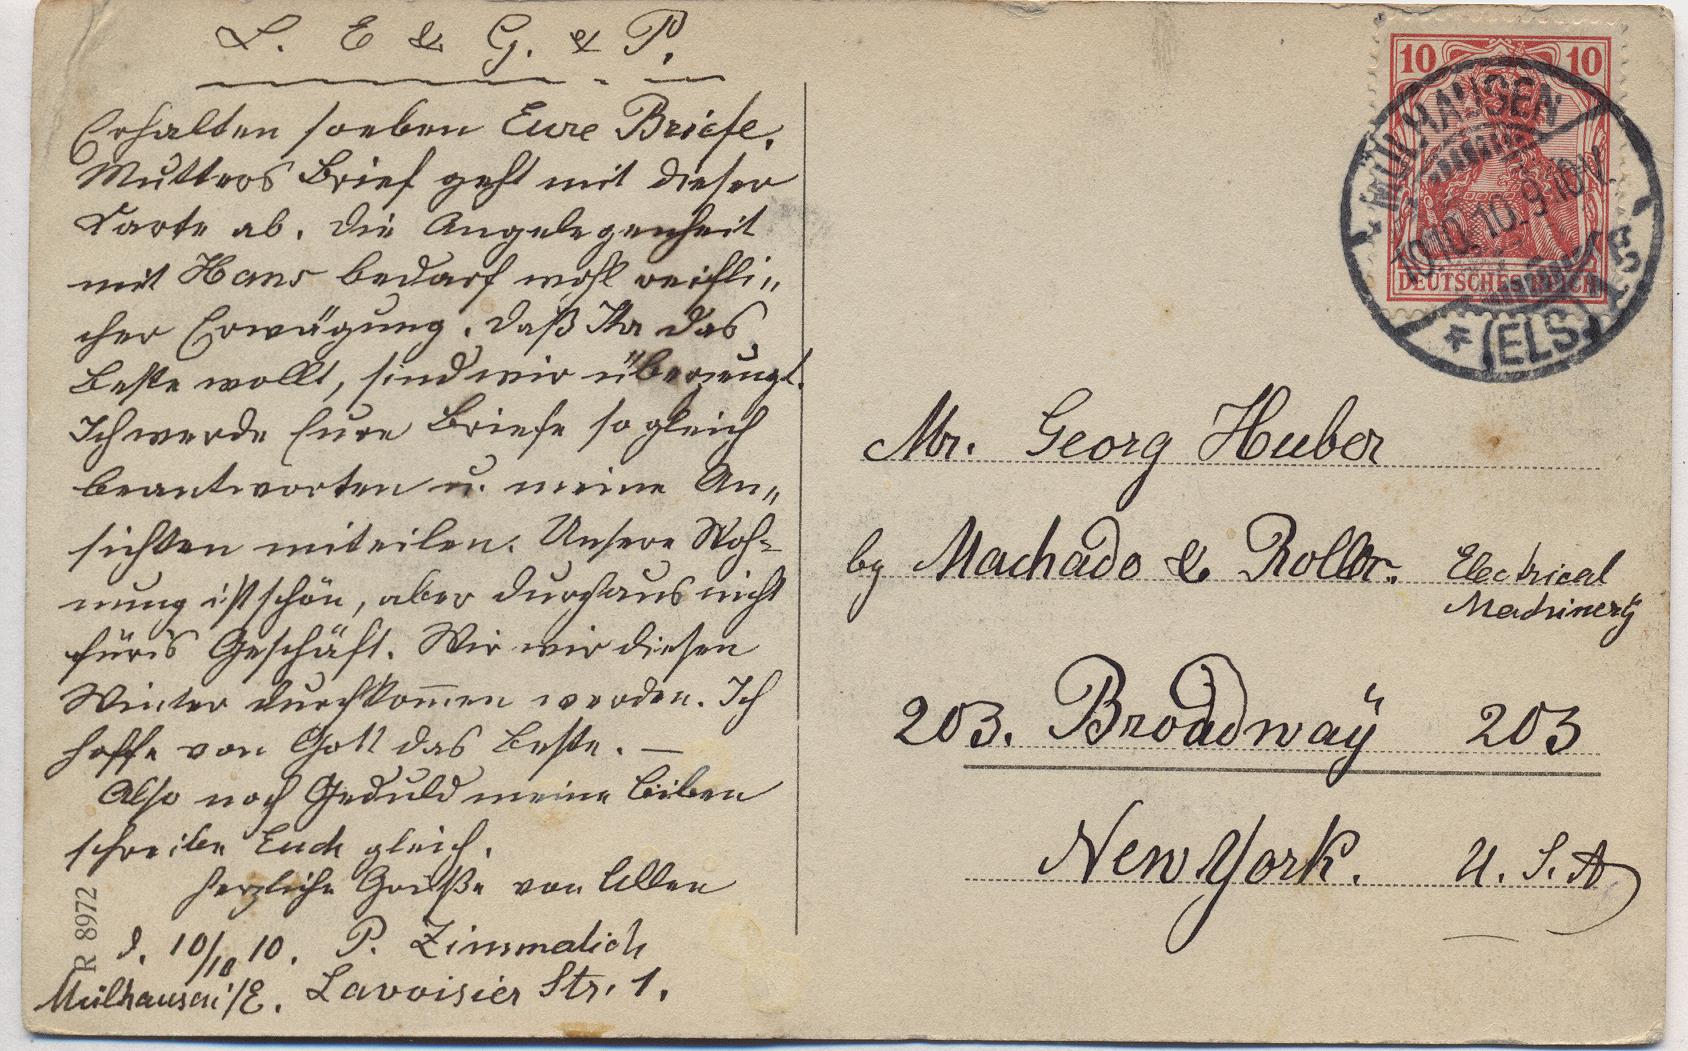 L. E & G. & P.
Erhalten soeben Eure Briefe.
Mutters Brief geht mit dieser
Karte ab. Die Angelegenheit
mit Hans bedarf wohl reifli„
cher Erwägung. Daß Ihr das
Beste wollt, sind wir überzeugt.
Ich werde Eure Briefe sogleich
beantworten u. meine An„
sichten mitteilen. Unsere Woh=
nung ist schön, aber durchaus nicht
fürs Geschäft. Wir wir diesen
Winter durchkommen werden. Ich
hoffe von Gott das Beste. —
Also noch Geduld meine Liben
schreibe Euch gleich.
Herzliche Grüße von Allen
d. 10/10 10. P. Zimmalich
Mülhausen i/E. Lavoisier Str. 1.
R 8972
10 10
DEUTSCHES REICH
MÜLHAUSEN
10.10.10. 9-10 V.
* (ELS.)
Mr. Georg Huber
by Machado & Roller. Electrical
Machinery
203. Broadway 203
New York. U. S. A